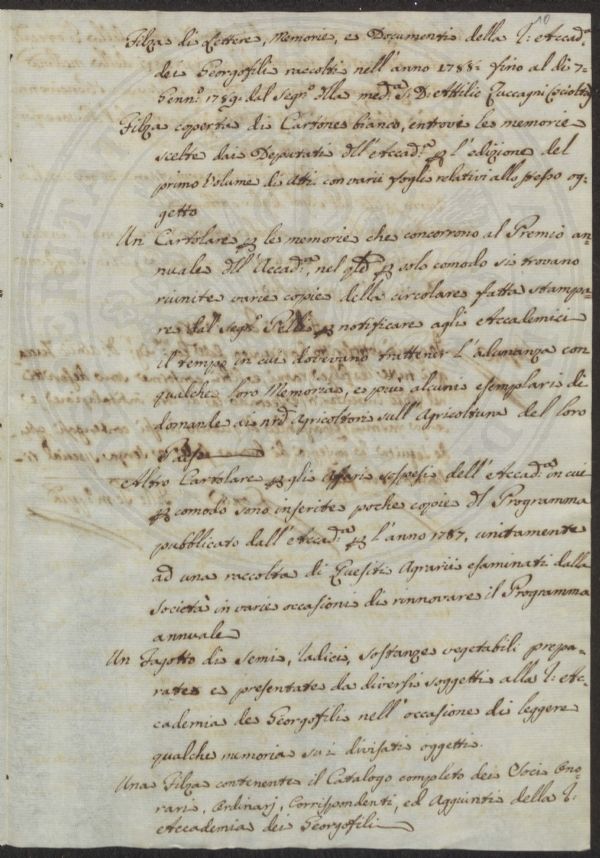 10
Filza di Lettere, Memorie, e Documenti della I: Accad.ª
dei Georgofili raccolti nell'anno 1788: fino al dì 7=
Genn: 1789: dal Segr.º della med.ª S: D: Attilio Zuccagni (sciolta)
Filza coperta di Cartone bianco, entrovi le memorie
scelte dai Deputati dll'Accad.ª p l'edizione del
primo Volume di Atti con varii fogli relativi allo stesso og=
getto
Un Cartolare p le memorie che concorrono al Premio an=
nuale dll'Accad.ª, nel qle p solo comodo si trovano
riunite varie copie della circolare fatta stampa=
re dal Segr.º Pelli p notificare agli Accademici
il tempo in cui dovevano trattener l'adunanza con
qualche loro Memoria, e più alcuni esemplari di
domande ai nri Agricoltori sull'Agricoltura del loro
Paese
Altro Cartolare p gli affari sospesi dell'Accad.ª in cui
p comodo sono inserite poche copie dl Programma
pubblicato dall'Accad.ª p l'anno 1787, unitamente
ad una raccolta di Quesiti Agrarii esaminati dalla
Società in varie occasioni di rinnovare il Programma
annuale
Un Fagotto di semi, radici, sostanze vegetabili prepa=
rate e presentate da diversi soggetti alla I: Ac=
cademia de Georgofili nell'occasione di leggere
qualche memoria su i divisati oggetti.
Una Filza contenente il Catalogo completo dei Soci Ono=
rari, Ordinarj, Corrispondenti, ed Aggiunti della I:
Accademia dei Georgofili